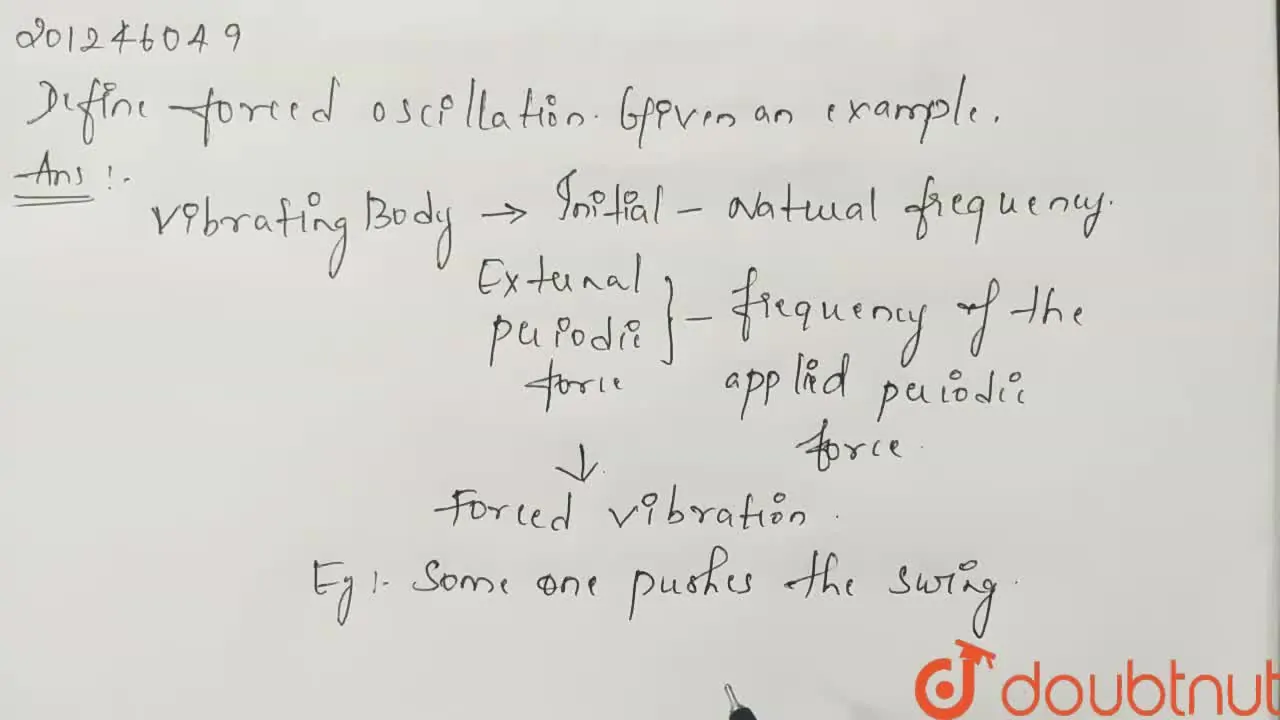 201246049
Define forced oscillation. Given an example.
Ans :-
Vibrating Body → Initial - Natural frequency.
External
periodic
force
} - frequency of the
applied periodic
force.
↓
Forced vibration.
Eg :- Some one pushes the swing.
doubtnut